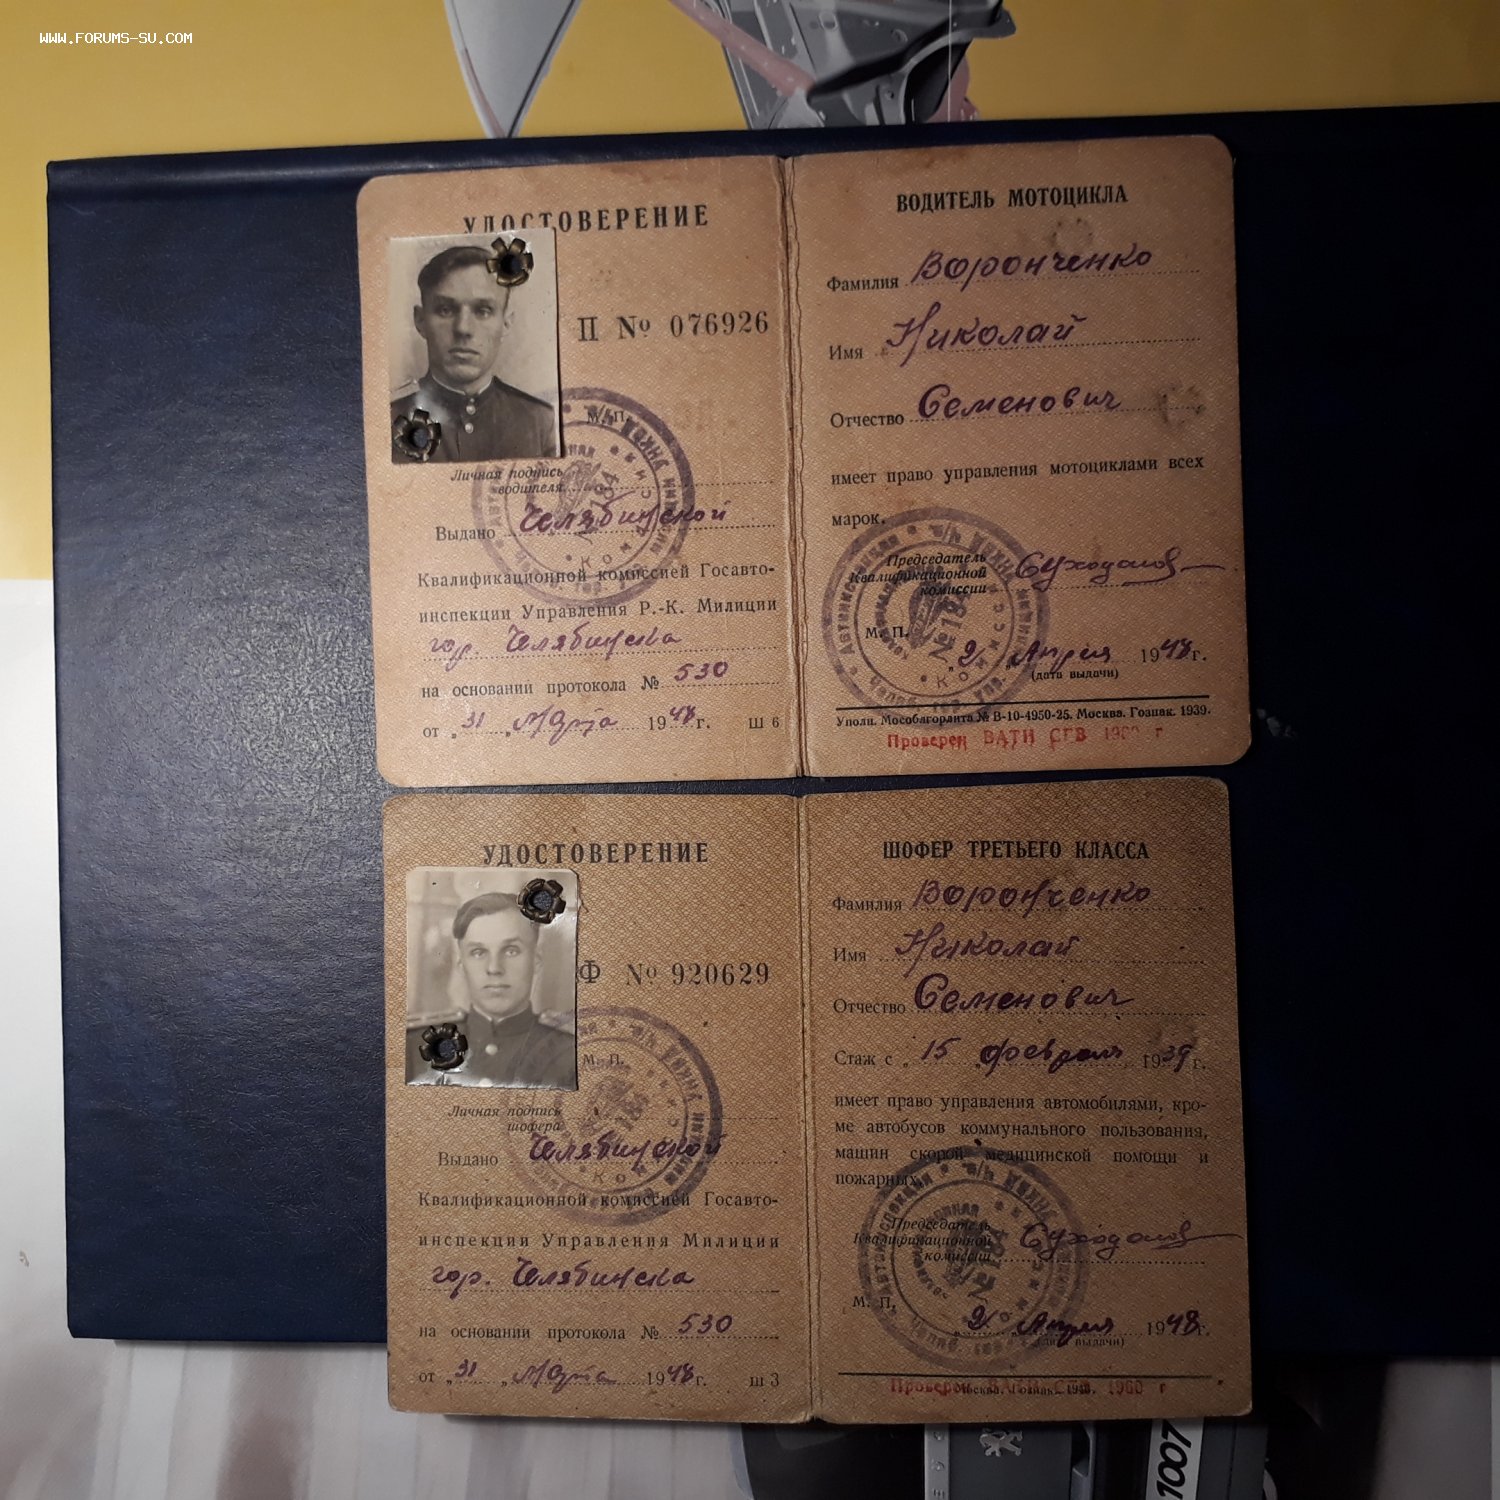 WWW.FORUMS-SU.COM
УДОСТОВЕРЕНИЕ
П № 076926
М. П.
Личная подпись
водителя
Выдано Челябинской
Квалификационной комиссией Госавто-
инспекции Управления Р.-К. Милиции
гор. Челябинска
на основании протокола № 530
от „31 „ Марта 1948 г. Ш 6
ВОДИТЕЛЬ МОТОЦИКЛА
Фамилия Воронченко
Имя Николай
Отчество Семенович
имеет право управления мотоциклами всех
марок.
Председатель
Квалификационной
комиссии Суходолов
М. П.
„2 „ Апреля 1948 г.
(дата выдачи)
Уполн. Мособлгорлита № В-10-4950-25. Москва. Гознак. 1939.
Проверен ВАТИ СГВ г
УДОСТОВЕРЕНИЕ
Ф № 920629
М. П.
Личная подпись
шофера
Выдано Челябинской
Квалификационной комиссией Госавто-
инспекции Управления Милиции
гор. Челябинска
на основании протокола № 530
от „31 „ Марта 1948 г. Ш 3
ШОФЕР ТРЕТЬЕГО КЛАССА
Фамилия Воронченко
Имя Николай
Отчество Семенович
Стаж с „15 „ февраля 1939 г.
имеет право управления автомобилями, кро-
ме автобусов коммунального пользования,
машин скорой медицинской помощи и
пожарных.
Председатель
Квалификационной
комиссии Суходолов
М. П.
„2 „ Апреля 1948 г.
(дата выдачи)
Проверен ВАТИ СГВ 1960 г
1007